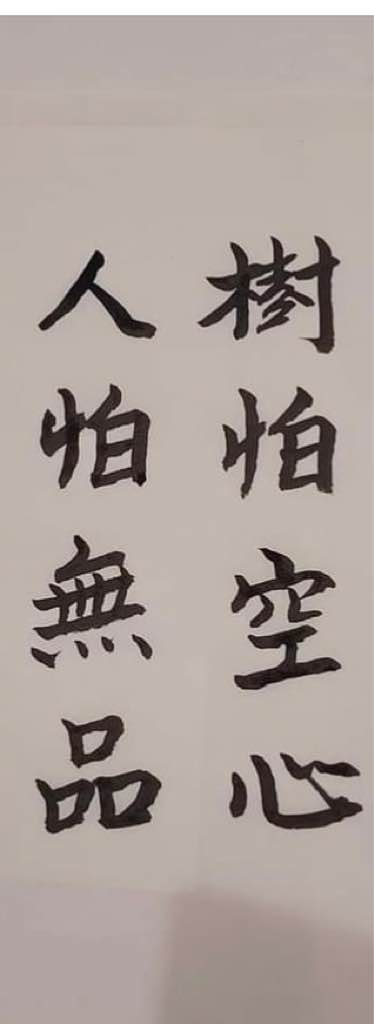 樹怕空心
人怕無品